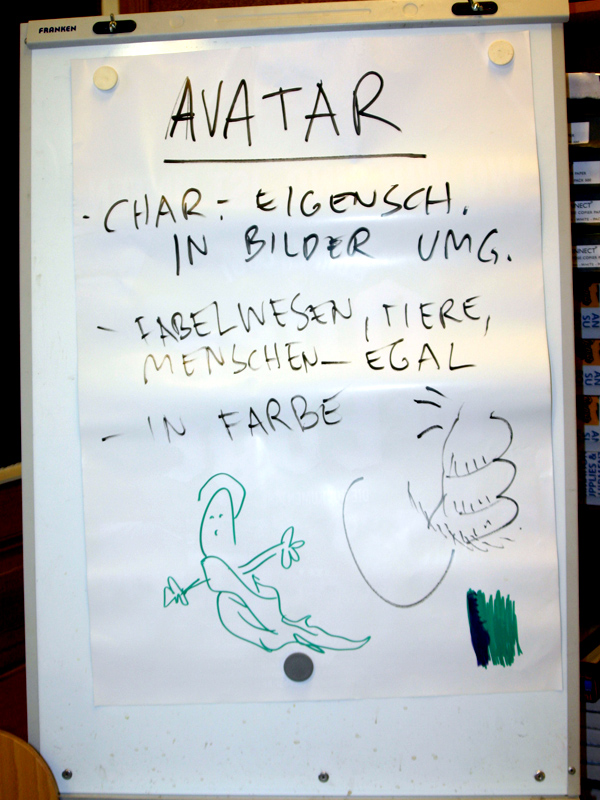 FRANKEN
AVATAR
- CHAR: EIGENSCH.
IN BILDER UMG.
- FABELWESEN, TIERE,
MENSCHEN – EGAL
- IN FARBE